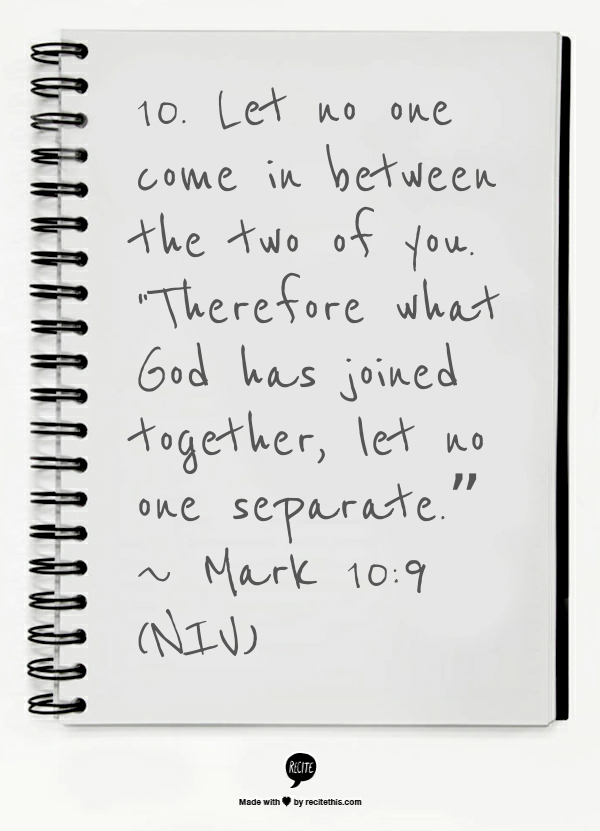 10. Let no one
come in between
the two of you.
"Therefore what
God has joined
together, let no
one separate.”
~ Mark 10:9
(NIV)
RECITE
Made with ♥ by recitethis.com